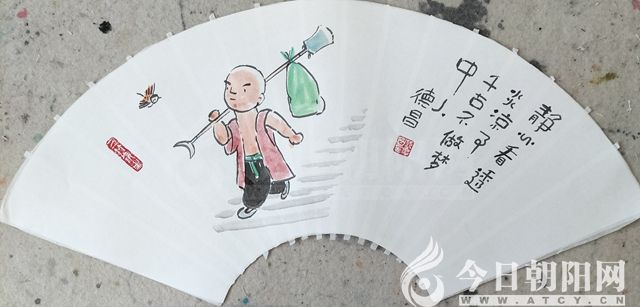 静心看透
炎凉事
千古不做梦
中人
德昌
今日朝阳网
WWW.ATCY.CN